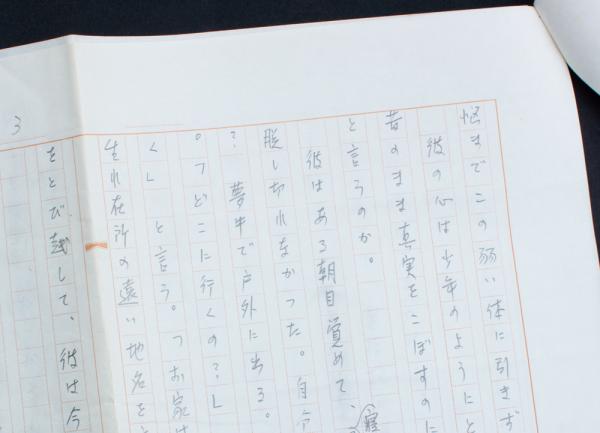 悩までこの弱い体に引きず
彼の心は少年のようにと
昔のまま真実をこぼすのに
と言うのか。
彼はある朝目覚めて、
脱し切れなかった。自分
?夢中で戸外に出る。
。「どこに行くの?」
く」と言う。「お家は
生れ在所の遠い地名を
をとび越して、彼は今
3